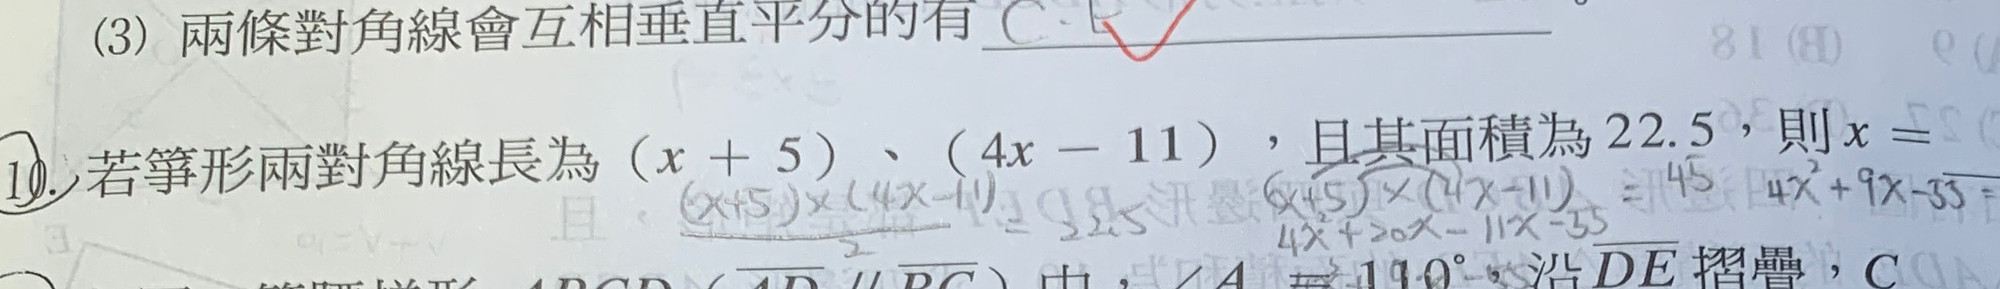 (3) 兩條對角線會互相垂直平分的有 C.E
10. 若箏形兩對角線長為（x + 5）、（4x − 11），且其面積為 22.5，則 x =
(x+5)×(4x-11) = 22.5 (x+5)×(4x-11) = 45 4x²+9x-55=
2 4x²+20x-11x-55
ABCD（AD // BC）中，∠A = 110°，沿 DE 摺疊，C